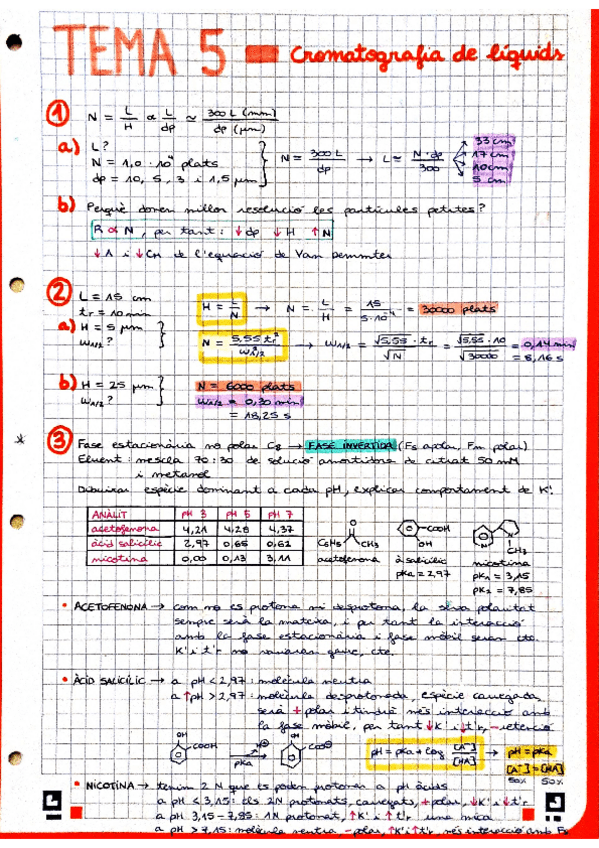 TEMA 5 - Cromatografia de líquids
1 N = L/H ∝ L/dp ≃ 300 L (mm)/dp (µm)
a) L?
N = 1,0 · 10⁴ plats
dp = 10, 5, 3 i 1,5 µm
N = 300 L/dp → L = N · dp/300
33 cm
17 cm
10 cm
5 cm
b) Perquè donen millor resolució les partícules petites?
R ∝ N, per tant: ↓dp ↓H ↑N
↓A i ↓CM de l'equació de Van Deemter
2 L = 15 cm
tr = 10 min
H = L/N → N = L/H = 15/5·10⁻⁴ = 30000 plats
a) H = 5 µm
W1/2?
N = 5,55 tr²/W²1/2 → W1/2 = √5,55 · tr/√N = √5,55 · 10/√30000 = 0,14 min
= 8,16 s
b) H = 25 µm
W1/2?
N = 6000 plats
W1/2 = 0,30 min
= 18,25 s
3 Fase estacionària no polar C8 → FASE INVERTIDA (Fs apolar, Fm polar)
Eluent: mescla 70:30 de solució amortidora de citrat 50 mM
i metanol
Dibuixar espècie dominant a cada pH, explicar comportament de K'.
ANÀLIT pH 3 pH 5 pH 7
acetofenona 4,21 4,28 4,37
àcid salicílic 2,97 0,65 0,62
nicotina 0,00 0,13 3,11
O
C6H5 CH3
acetofenona
COOH
OH
à salicílic
pKa = 2,97
N
N
CH3
nicotina
pK1 = 3,15
pK2 = 7,85
• ACETOFENONA → com no es protona ni desprotona, la seva polaritat
sempre serà la mateixa, i per tant la interacció
amb la fase estacionària i fase mòbil seran cte.
K' i t'r no variaran gaire, cte.
• ÀCID SALICÍLIC → a pH < 2,97: molècula neutra
a ↑pH > 2,97: molècula desprotonada, espècie carregada
serà + polar i tindrà més interacció amb
la fase mòbil, per tant ↓K' i ↓t'r, - retenció
OH
COOH
H⊕
pKa
OH
COO⊖
pH = pKa + log [A⁻]/[HA] → pH = pKa
[A⁻] = [HA]
50% 50%
• NICOTINA → tenim 2 N que es poden protonar a pH àcids
a pH < 3,15: els 2N protonats, carregats, + polar, ↓K' i ↓t'r
a pH 3,15 - 7,85: 1N protonat, ↑K' i ↑t'r una mica
a pH > 7,15: molècula neutra - polar, ↑K' i ↑t'r, més interacció amb Fs